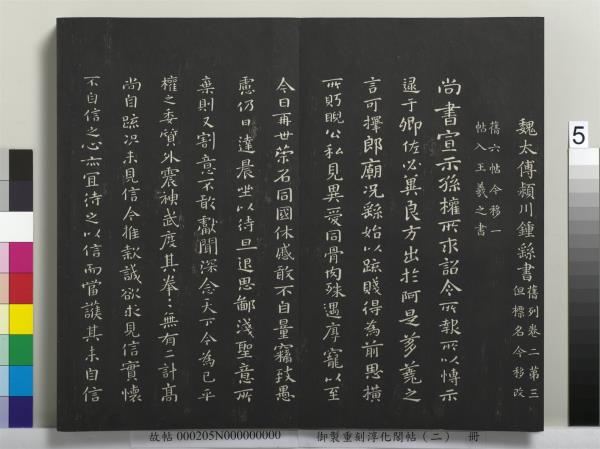 魏太傅潁川鍾繇書舊列卷二第三但標名今移改
舊六帖今移一帖入王羲之書
尚書宣示孫權所求詔令所報所以博示
逮于卿佐必冀良方出於阿是芻蕘之
言可擇郎廟況繇始以疏賤得為前恩橫
所眄睨公私見異愛同骨肉殊遇厚寵以至
今日再世榮名同國休慼敢不自量竊致愚
慮仍日達晨坐以待旦退思鄙淺聖意所
棄則又割意不敢獻聞深念天下今為已平
權之委質外震神武度其拳〻無有二計高
尚自疏況未見信今推款誠欲求見信實懷
不自信之心亦宜待之以信而當護其未自信
5
故帖 000205N000000000 御製重刻淳化閣帖（二） 冊